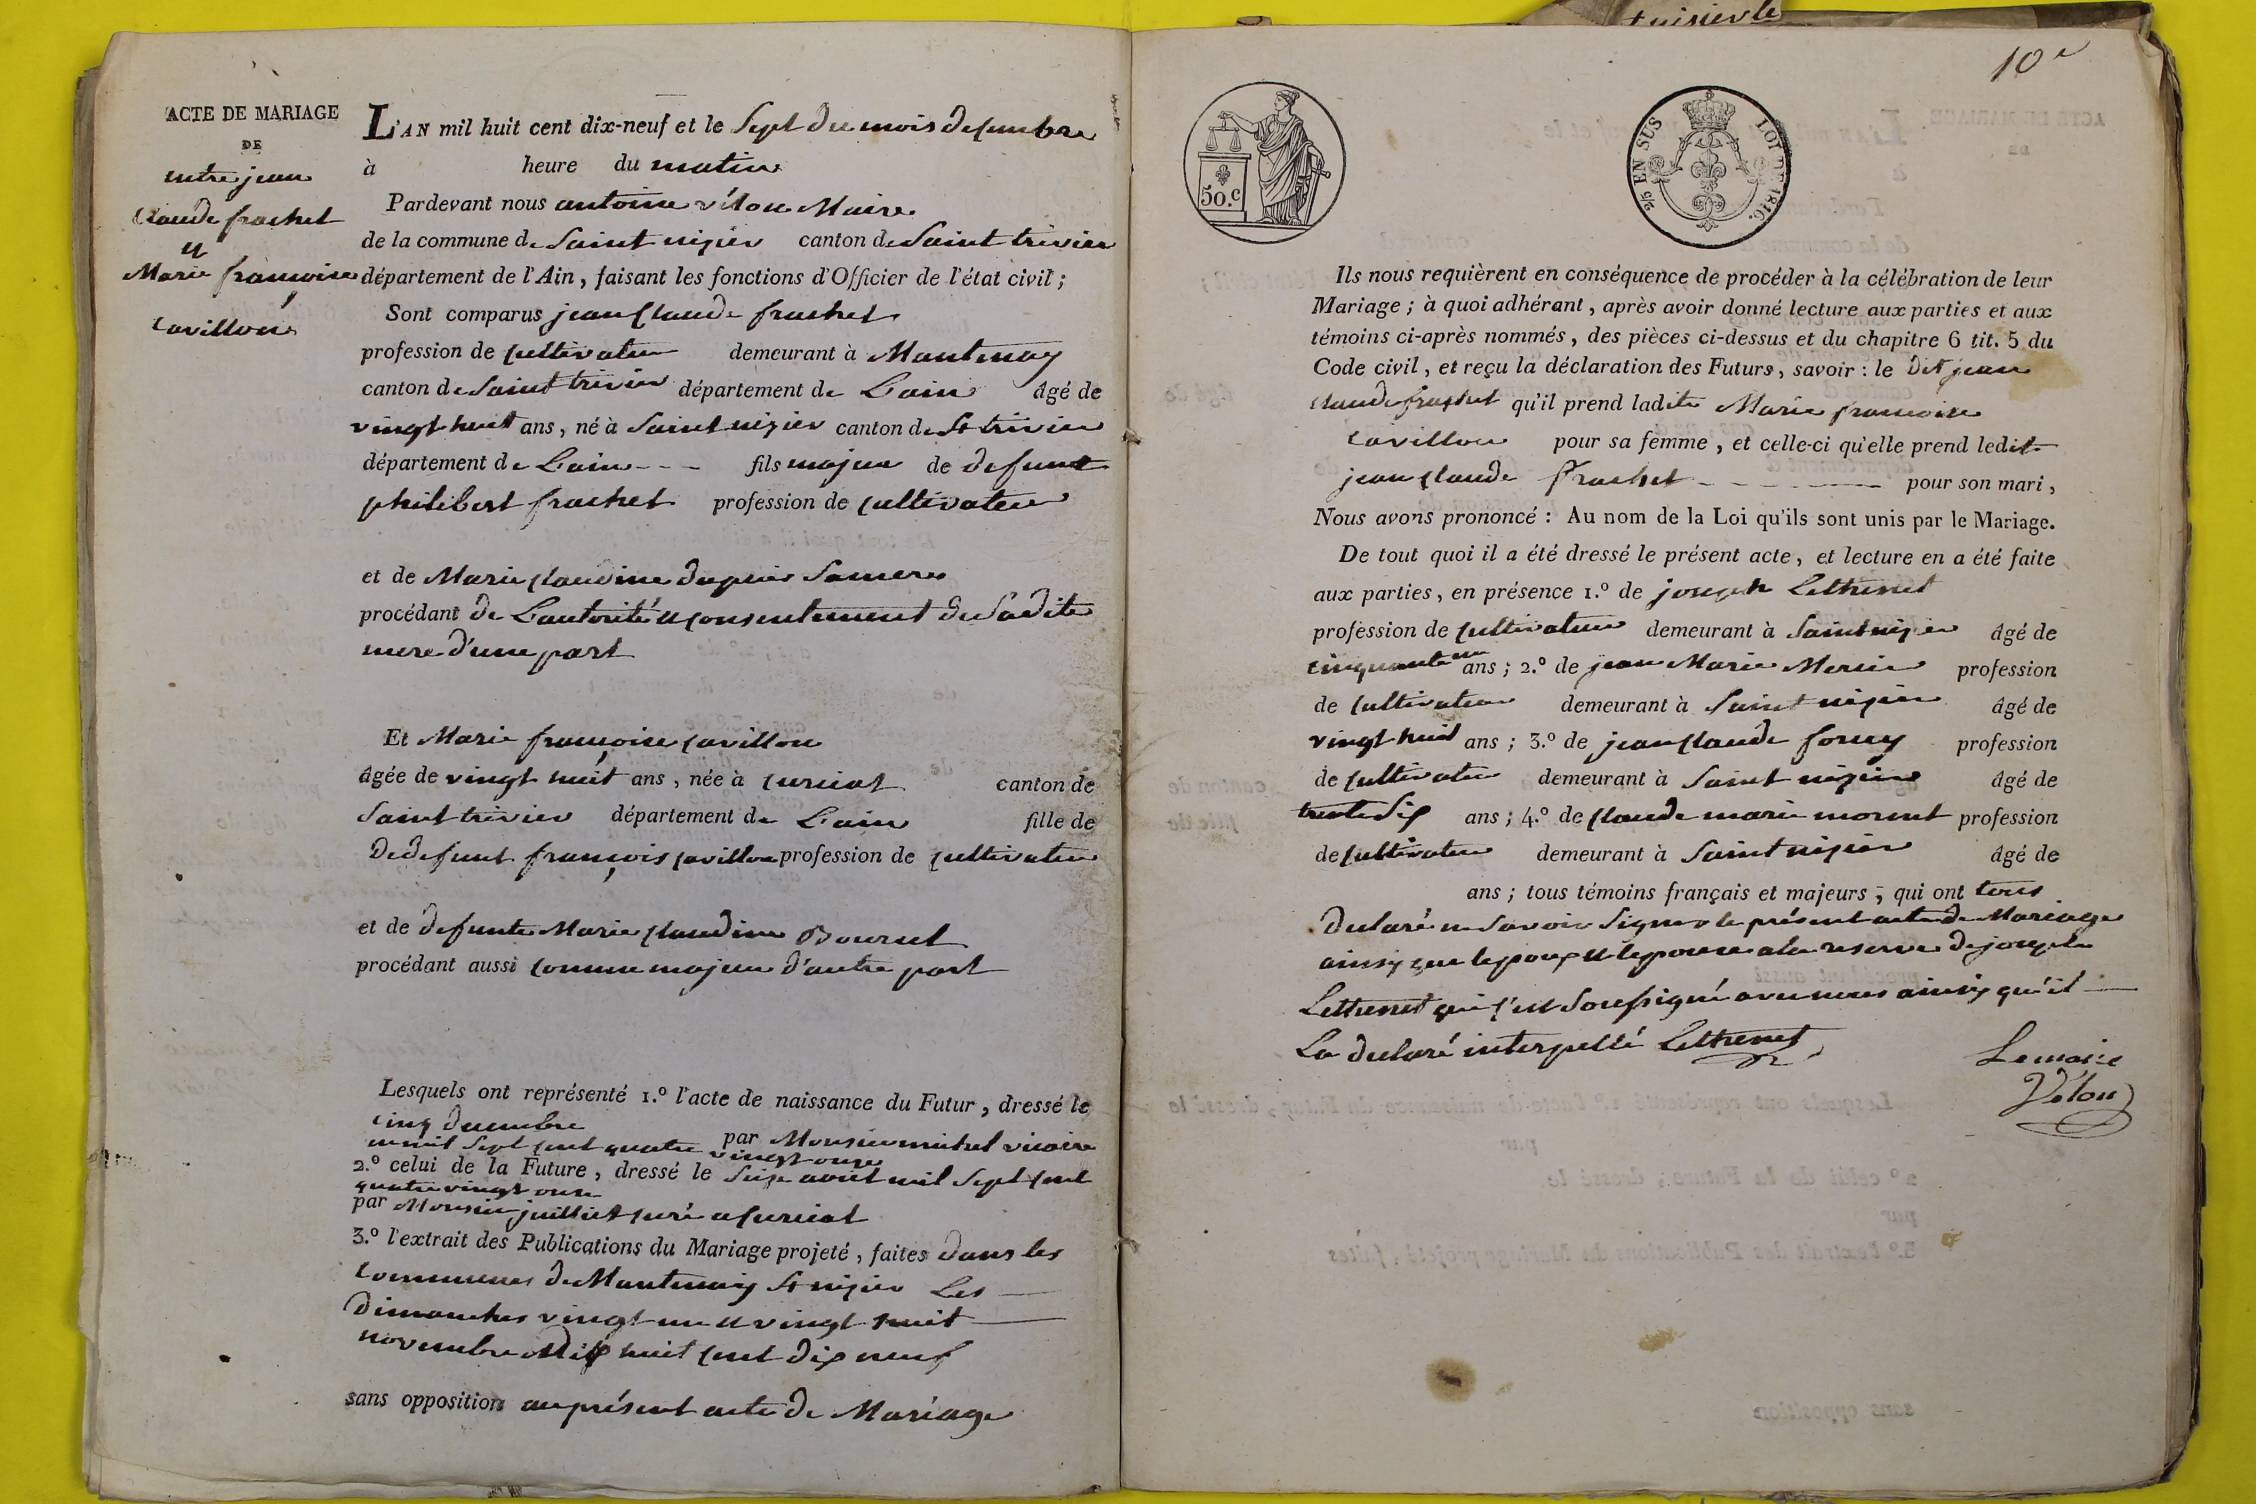 ACTE DE MARIAGE
DE
entre jean
Claude frachet
et
Marie françoise
Cavillon
L'AN mil huit cent dix-neuf et le Sept du mois decembre
à heure du matin
Pardevant nous antoine vélon Maire
de la commune de Saint nizier canton de Saint trivier
département de l'Ain, faisant les fonctions d'Officier de l'état civil;
Sont comparus jean Claude frachet
profession de Cultivateur demeurant à Mantenay
canton de Saint trivier département de L'ain âgé de
vingt huit ans, né à Saint nizier canton de St trivier
département de L'ain - - - fils majeur de defunt
philibert frachet profession de Cultivateur
et de Marie Claudine dupuis Sa mere
procédant de L'autorité et Consentement de Sadite
mere d'une part
Et Marie françoise Cavillon
âgée de vingt huit ans, née à Curciat canton de
Saint trivier département de L'ain fille de
De defunt françois Cavillon profession de Cultivateur
et de defunte Marie Claudine Bournet
procédant aussi Comme majeure d'autre part
Lesquels ont représenté 1.º l'acte de naissance du Futur, dressé le
cinq decembre
mil Sept Cent quatre vingt onze par Monsieur michel vicaire
2.º celui de la Future, dressé le Seize aout mil Sept Cent
quatre vingt onze
par Monsieur juillet curé a Curciat
3.º l'extrait des Publications du Mariage projeté, faites dans les
Communes de Mantenay St nizier Les
Dimanches vingt un et vingt huit
novembre Mil huit Cent Dix neuf
sans opposition au présent acte de Mariage
10e
50.c
2/5 EN SUS
LOI DE 1816.
Ils nous requièrent en conséquence de procéder à la célébration de leur
Mariage; à quoi adhérant, après avoir donné lecture aux parties et aux
témoins ci-après nommés, des pièces ci-dessus et du chapitre 6 tit. 5 du
Code civil, et reçu la déclaration des Futurs, savoir: le dit jean
Claude frachet qu'il prend ladite Marie francoise
Cavillon pour sa femme, et celle-ci qu'elle prend ledit
jean Claude frachet - - - - - pour son mari,
Nous avons prononcé: Au nom de la Loi qu'ils sont unis par le Mariage.
De tout quoi il a été dressé le présent acte, et lecture en a été faite
aux parties, en présence 1.º de joseph Lethenet
profession de Cultivateur demeurant à Saint nizier âgé de
cinquante un ans; 2.º de jean Marie Mercier profession
de Cultivateur demeurant à Saint nizier âgé de
vingt huit ans; 3.º de jean Claude foray profession
de Cultivateur demeurant à Saint nizier âgé de
trente Six ans; 4.º de Claude marie morent profession
de Cultivateur demeurant à Saint nizier âgé de
ans; tous témoins français et majeurs, qui ont tous
declaré ne Savoir Signer le présent acte de Mariage
ainsy que lepoux et lepouse a la reserve de joseph
Lethenet qui C'est Soussigné avec nous ainsy qu'il
La declaré interpellé Lethenet
Le maire
Vélon